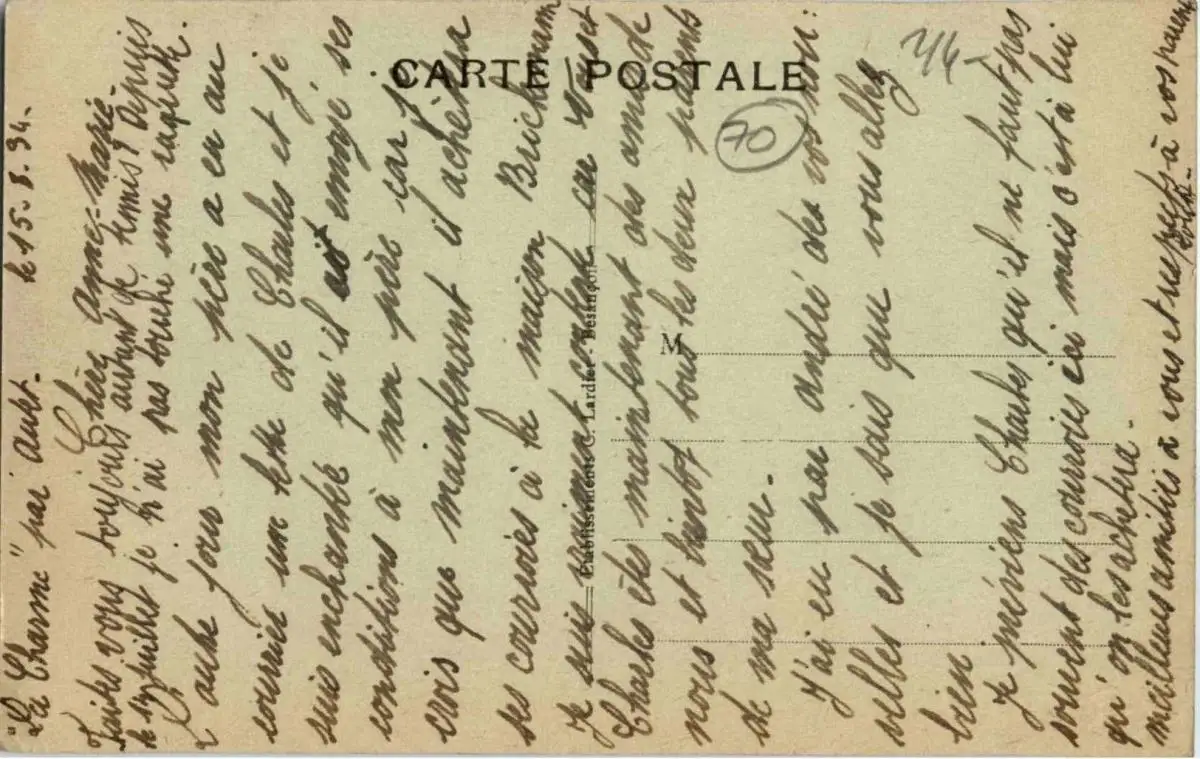 CARTE POSTALE
70
M
Etablissements C. Lardier - Besançon
"Le Charme" par Le 15.8.34.
Chère Anne-Marie -
Faites vous toujours autant de tennis? Depuis
le 14 juillet je n'ai pas touché une raquette.
L'autre jour mon père a eu au
courrier une lettre de Charles et je
suis enchanté qu'il ait envoyé ses
conditions à mon père car je
crois que maintenant il achètera
ses courroies à la maison
Je suis vraiment content car vous et
Charles êtes maintenant des amis de
nous et bientôt tous les deux parents
de ma sœur.
J'ai eu par André des vos nou:
velles et je sais que vous allez
bien
Je préviens Charles qu'il ne faut pas
souvent des courroies ici mais c'est à lui
qu'on les achètera.
meilleurs amitiés à vous et respects à vos parents